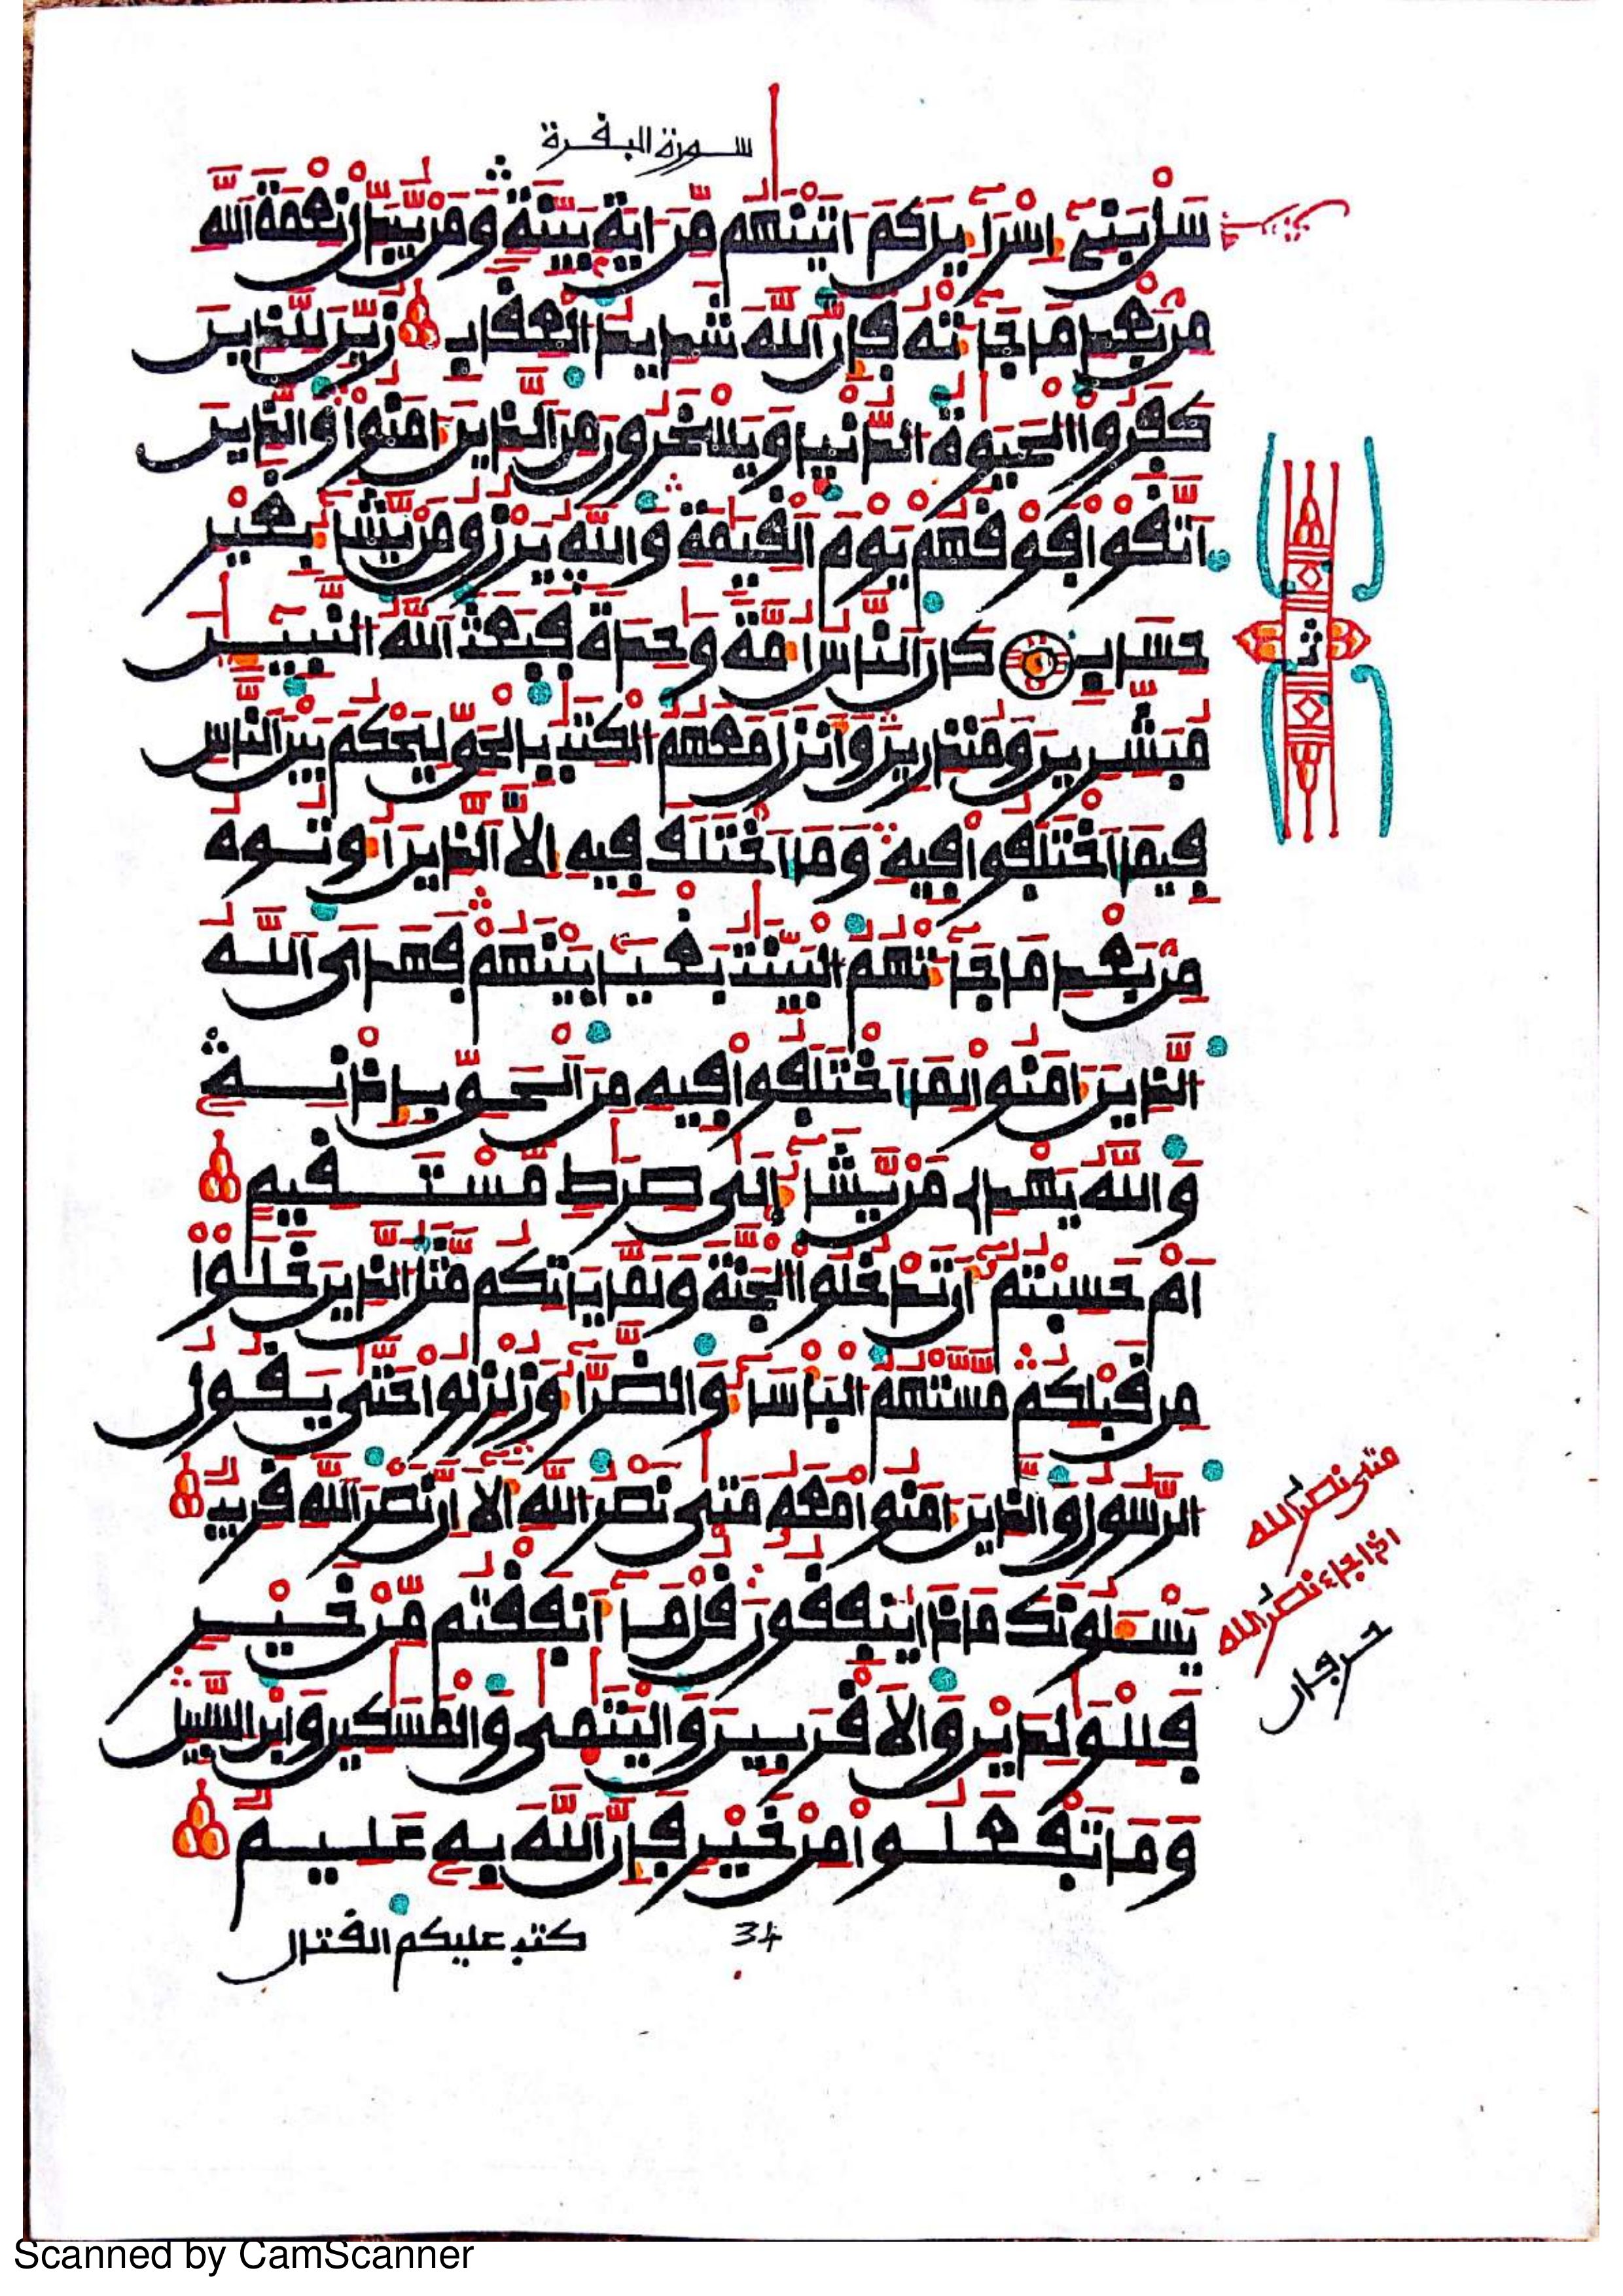 سورة البقرة
سَلْ بَنِےٓ إِسْرَآءِيلَ كَمَ اٰتَيْنَٰهُم مِّنَ اٰيَةِۢ بَيِّنَةٖ وَمَنْ يُّبَدِّلْ نِعْمَةَ اَ۬للَّهِ
مِنۢ بَعْدِ مَا جَآءَتْهُ فَإِنَّ اَ۬للَّهَ شَدِيدُ اُ۬لْعِقَابِ زُيِّنَ لِلذِينَ
كَفَرُواْ اُ۬لْحَيَوٰةُ اُ۬لدُّنْيَا وَيَسْخَرُونَ مِنَ اَ۬لذِينَ ءَامَنُواْ وَالذِينَ
اَ۪تَّقَواْ فَوْقَهُمْ يَوْمَ اَ۬لْقِيَٰمَةِ وَاللَّهُ يَرْزُقُ مَنْ يَّشَآءُ بِغَيْرِ
حِسَابٖ كَانَ اَ۬لنَّاسُ أُمَّةٗ وَٰحِدَةٗ فَبَعَثَ اَ۬للَّهُ اُ۬لنَّبِيٓـِٕينَ
مُبَشِّرِينَ وَمُنذِرِينَ وَأَنزَلَ مَعَهُمُ اُ۬لْكِتَٰبَ بِالْحَقِّ لِيَحْكُمَ بَيْنَ اَ۬لنَّاسِ
فِيمَا اَ۪خْتَلَفُواْ فِيهِ وَمَا اَ۪خْتَلَفَ فِيهِ إِلَّا اَ۬لذِينَ أُوتُوهُ
مِنۢ بَعْدِ مَا جَآءَتْهُمُ اُ۬لْبَيِّنَٰتُ بَغْياَۢ بَيْنَهُمْ فَهَدَى اَ۬للَّهُ
اُ۬لذِينَ ءَامَنُواْ لِمَا اَ۪خْتَلَفُواْ فِيهِ مِنَ اَ۬لْحَقِّ بِإِذْنِهِۦ
وَاللَّهُ يَهْدِے مَنْ يَّشَآءُ اِ۪لَىٰ صِرَٰطٖ مُّسْتَقِيمٍ
اَمْ حَسِبْتُمُۥٓ أَن تَدْخُلُواْ اُ۬لْجَنَّةَ وَلَمَّا يَاتِكُم مَّثَلُ اُ۬لذِينَ خَلَوْاْ
مِن قَبْلِكُم مَّسَّتْهُمُ اُ۬لْبَأْسَآءُ وَالضَّرَّآءُ وَزُلْزِلُواْ حَتَّىٰ يَقُولُ
اُ۬لرَّسُولُ وَالذِينَ ءَامَنُواْ مَعَهُۥ مَتَىٰ نَصْرُ اُ۬للَّهِ أَلَآ إِنَّ نَصْرَ اَ۬للَّهِ قَرِيبٞ
يَسْـَٔلُونَكَ مَاذَا يُنفِقُونَ قُلْ مَآ أَنفَقْتُم مِّنْ خَيْرٖ
فَلِلْوَٰلِدَيْنِ وَالَاقْرَبِينَ وَالْيَتَٰمَىٰ وَالْمَسَٰكِينِ وَابْنِ اِ۬لسَّبِيلِ
وَمَا تَفْعَلُواْ مِنْ خَيْرٖ فَإِنَّ اَ۬للَّهَ بِهِۦ عَلِيمٞ
ث
متى نصر الله
اذا جاء نصر الله
حرفان
كتب عليكم القتال
34
Scanned by CamScanner